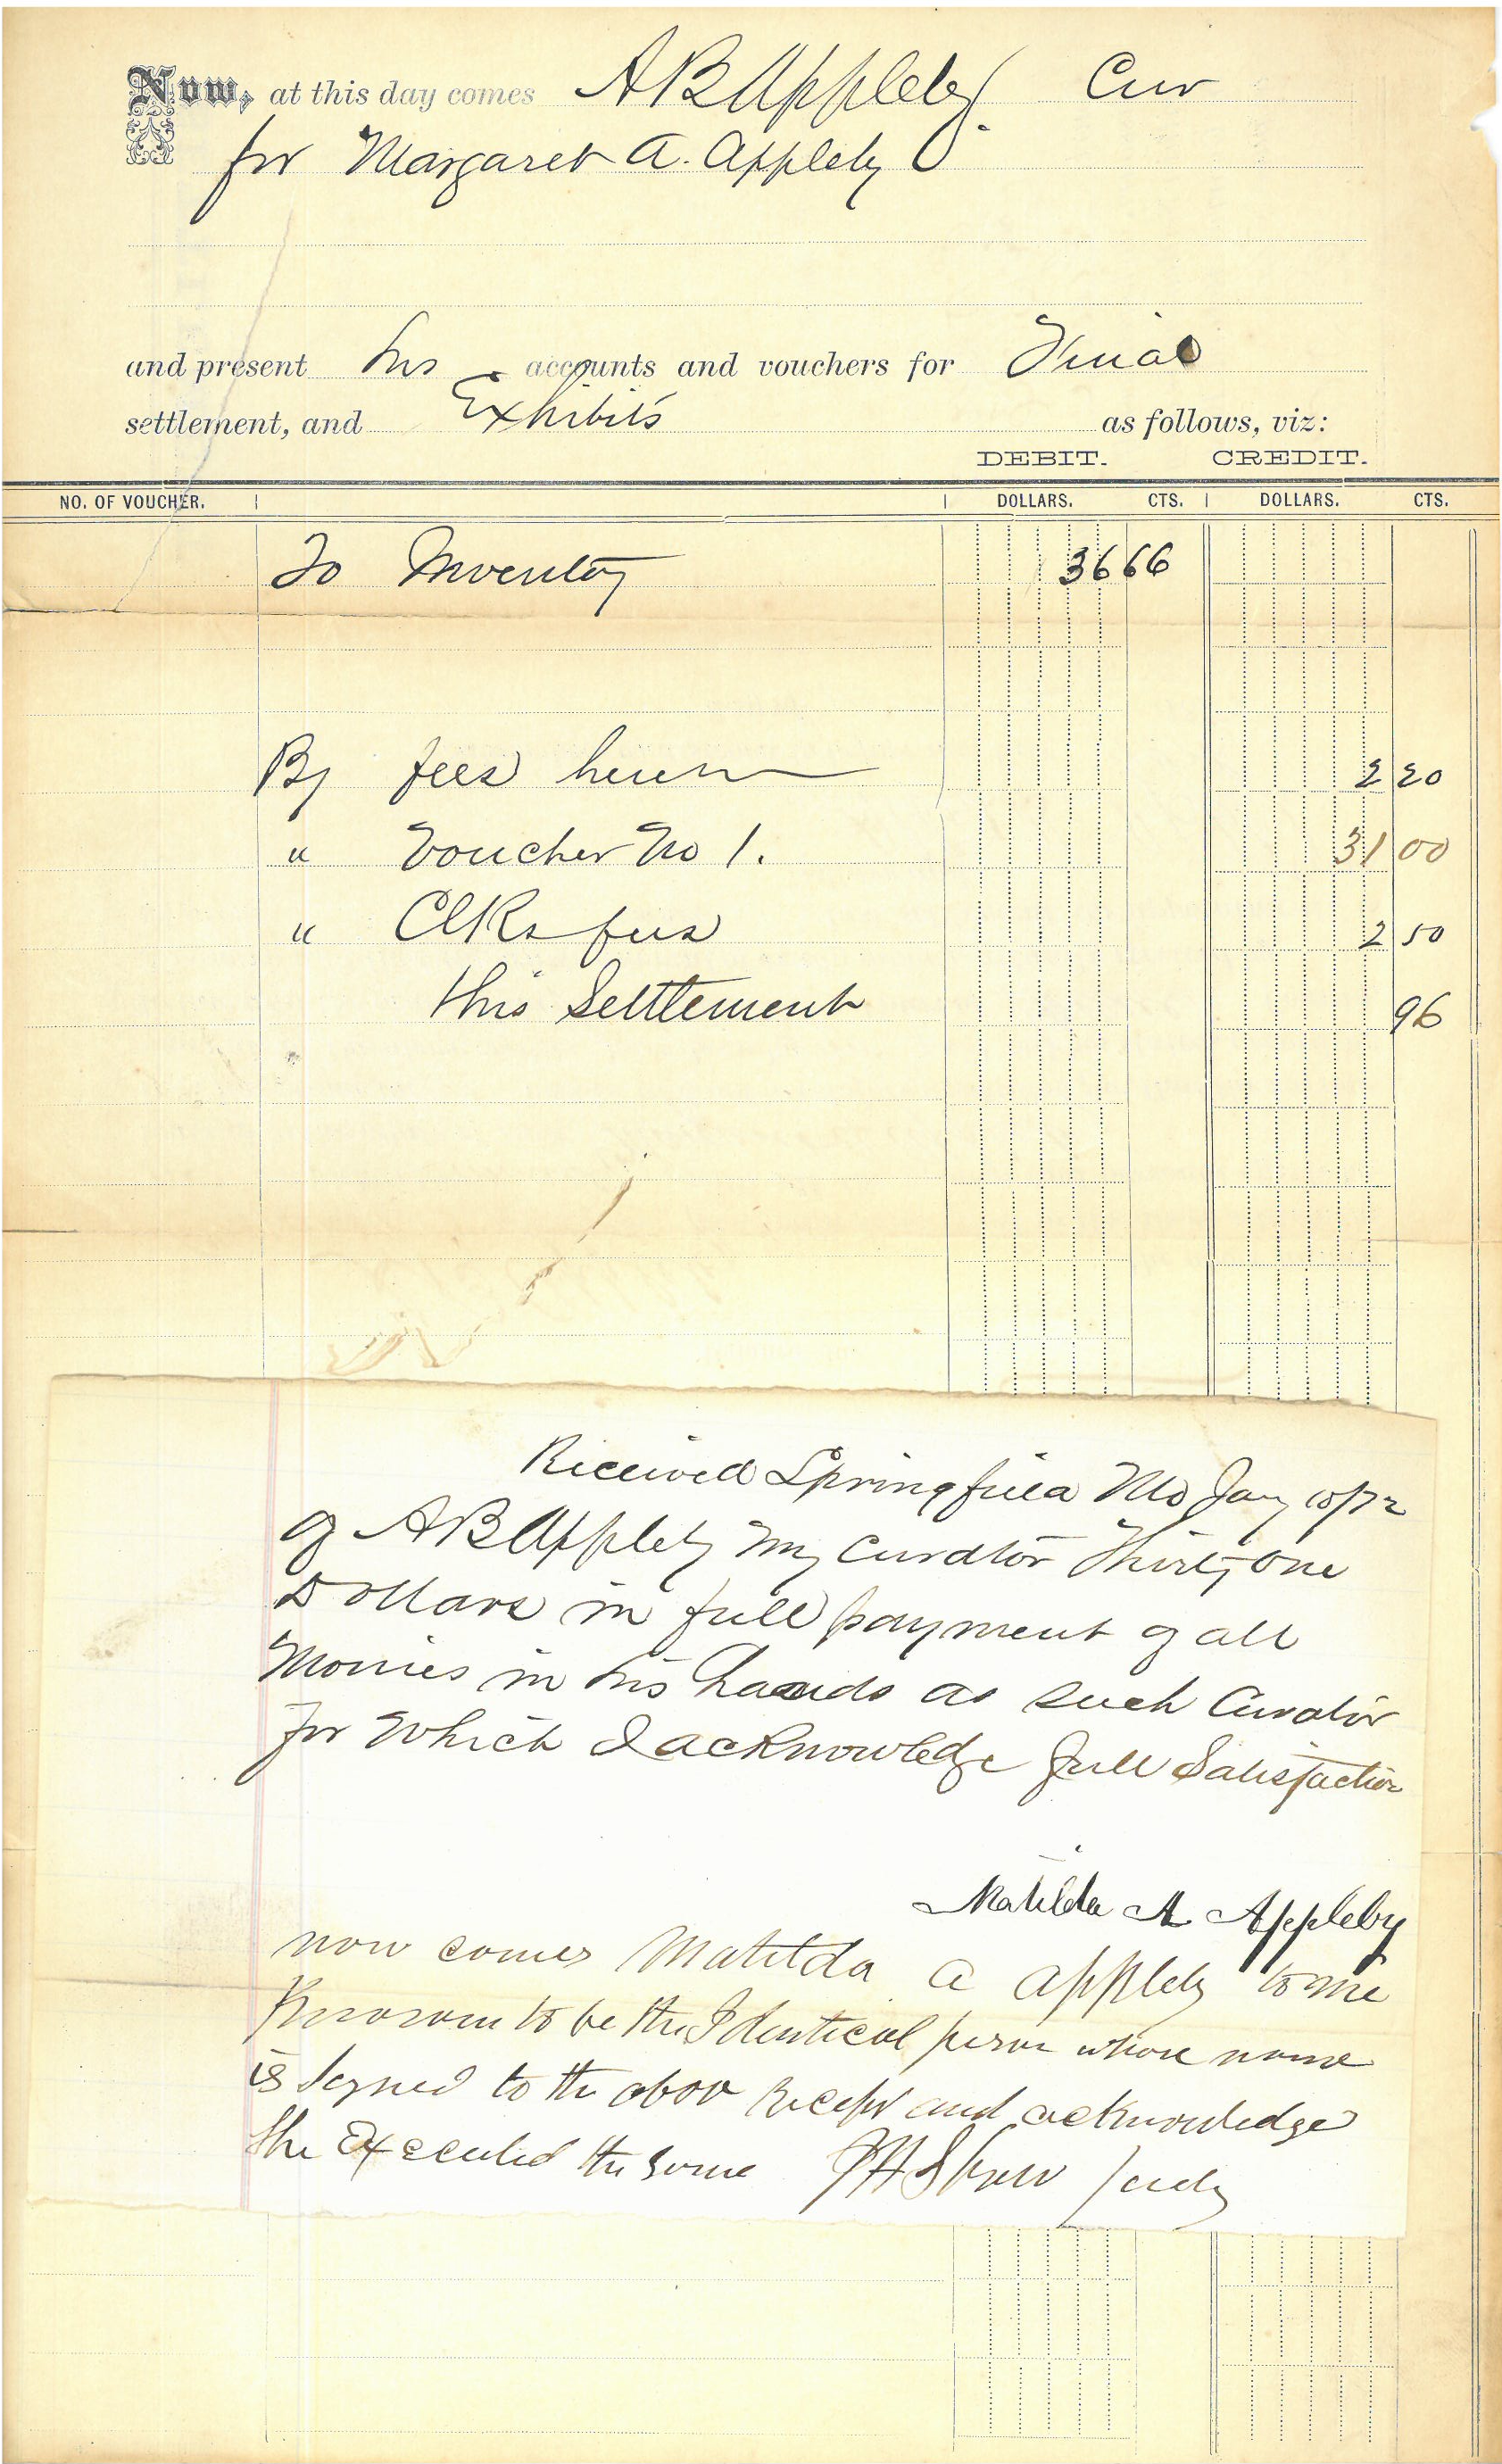 Now, at this day comes A B Appleby Cur
for Margaret A. Appleby
and present his accounts and vouchers for Final
settlement, and Exhibits as follows, viz:
DEBIT. CREDIT.
NO. OF VOUCHER. DOLLARS. CTS. DOLLARS. CTS.
To Inventory 36 66
By fees herein 2 20
" Voucher No 1. 31 00
" Clks fees 2 50
this Settlement 96
Received Springfield Mo Jany 10/72
of A B Appleby my Curator Thirty one
Dollars in full payment of all
Monies in his hands as such Curator
for Which I acknowledge full Satisfaction
Matilda A Appleby
now comes Matilda A Appleby to me
Knowen to be the Identical person whose name
is Signed to the abov Recept and acknowledge
She Executed the same J H Show Judg